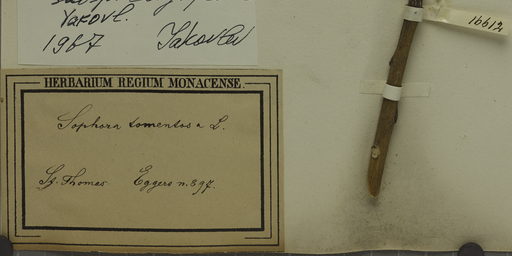 Yakovl.
1967 Jakovlev
16612
HERBARIUM REGIUM MONACENSE.
Sophora tomentosa L.
St. Thomas Eggers n. 397.